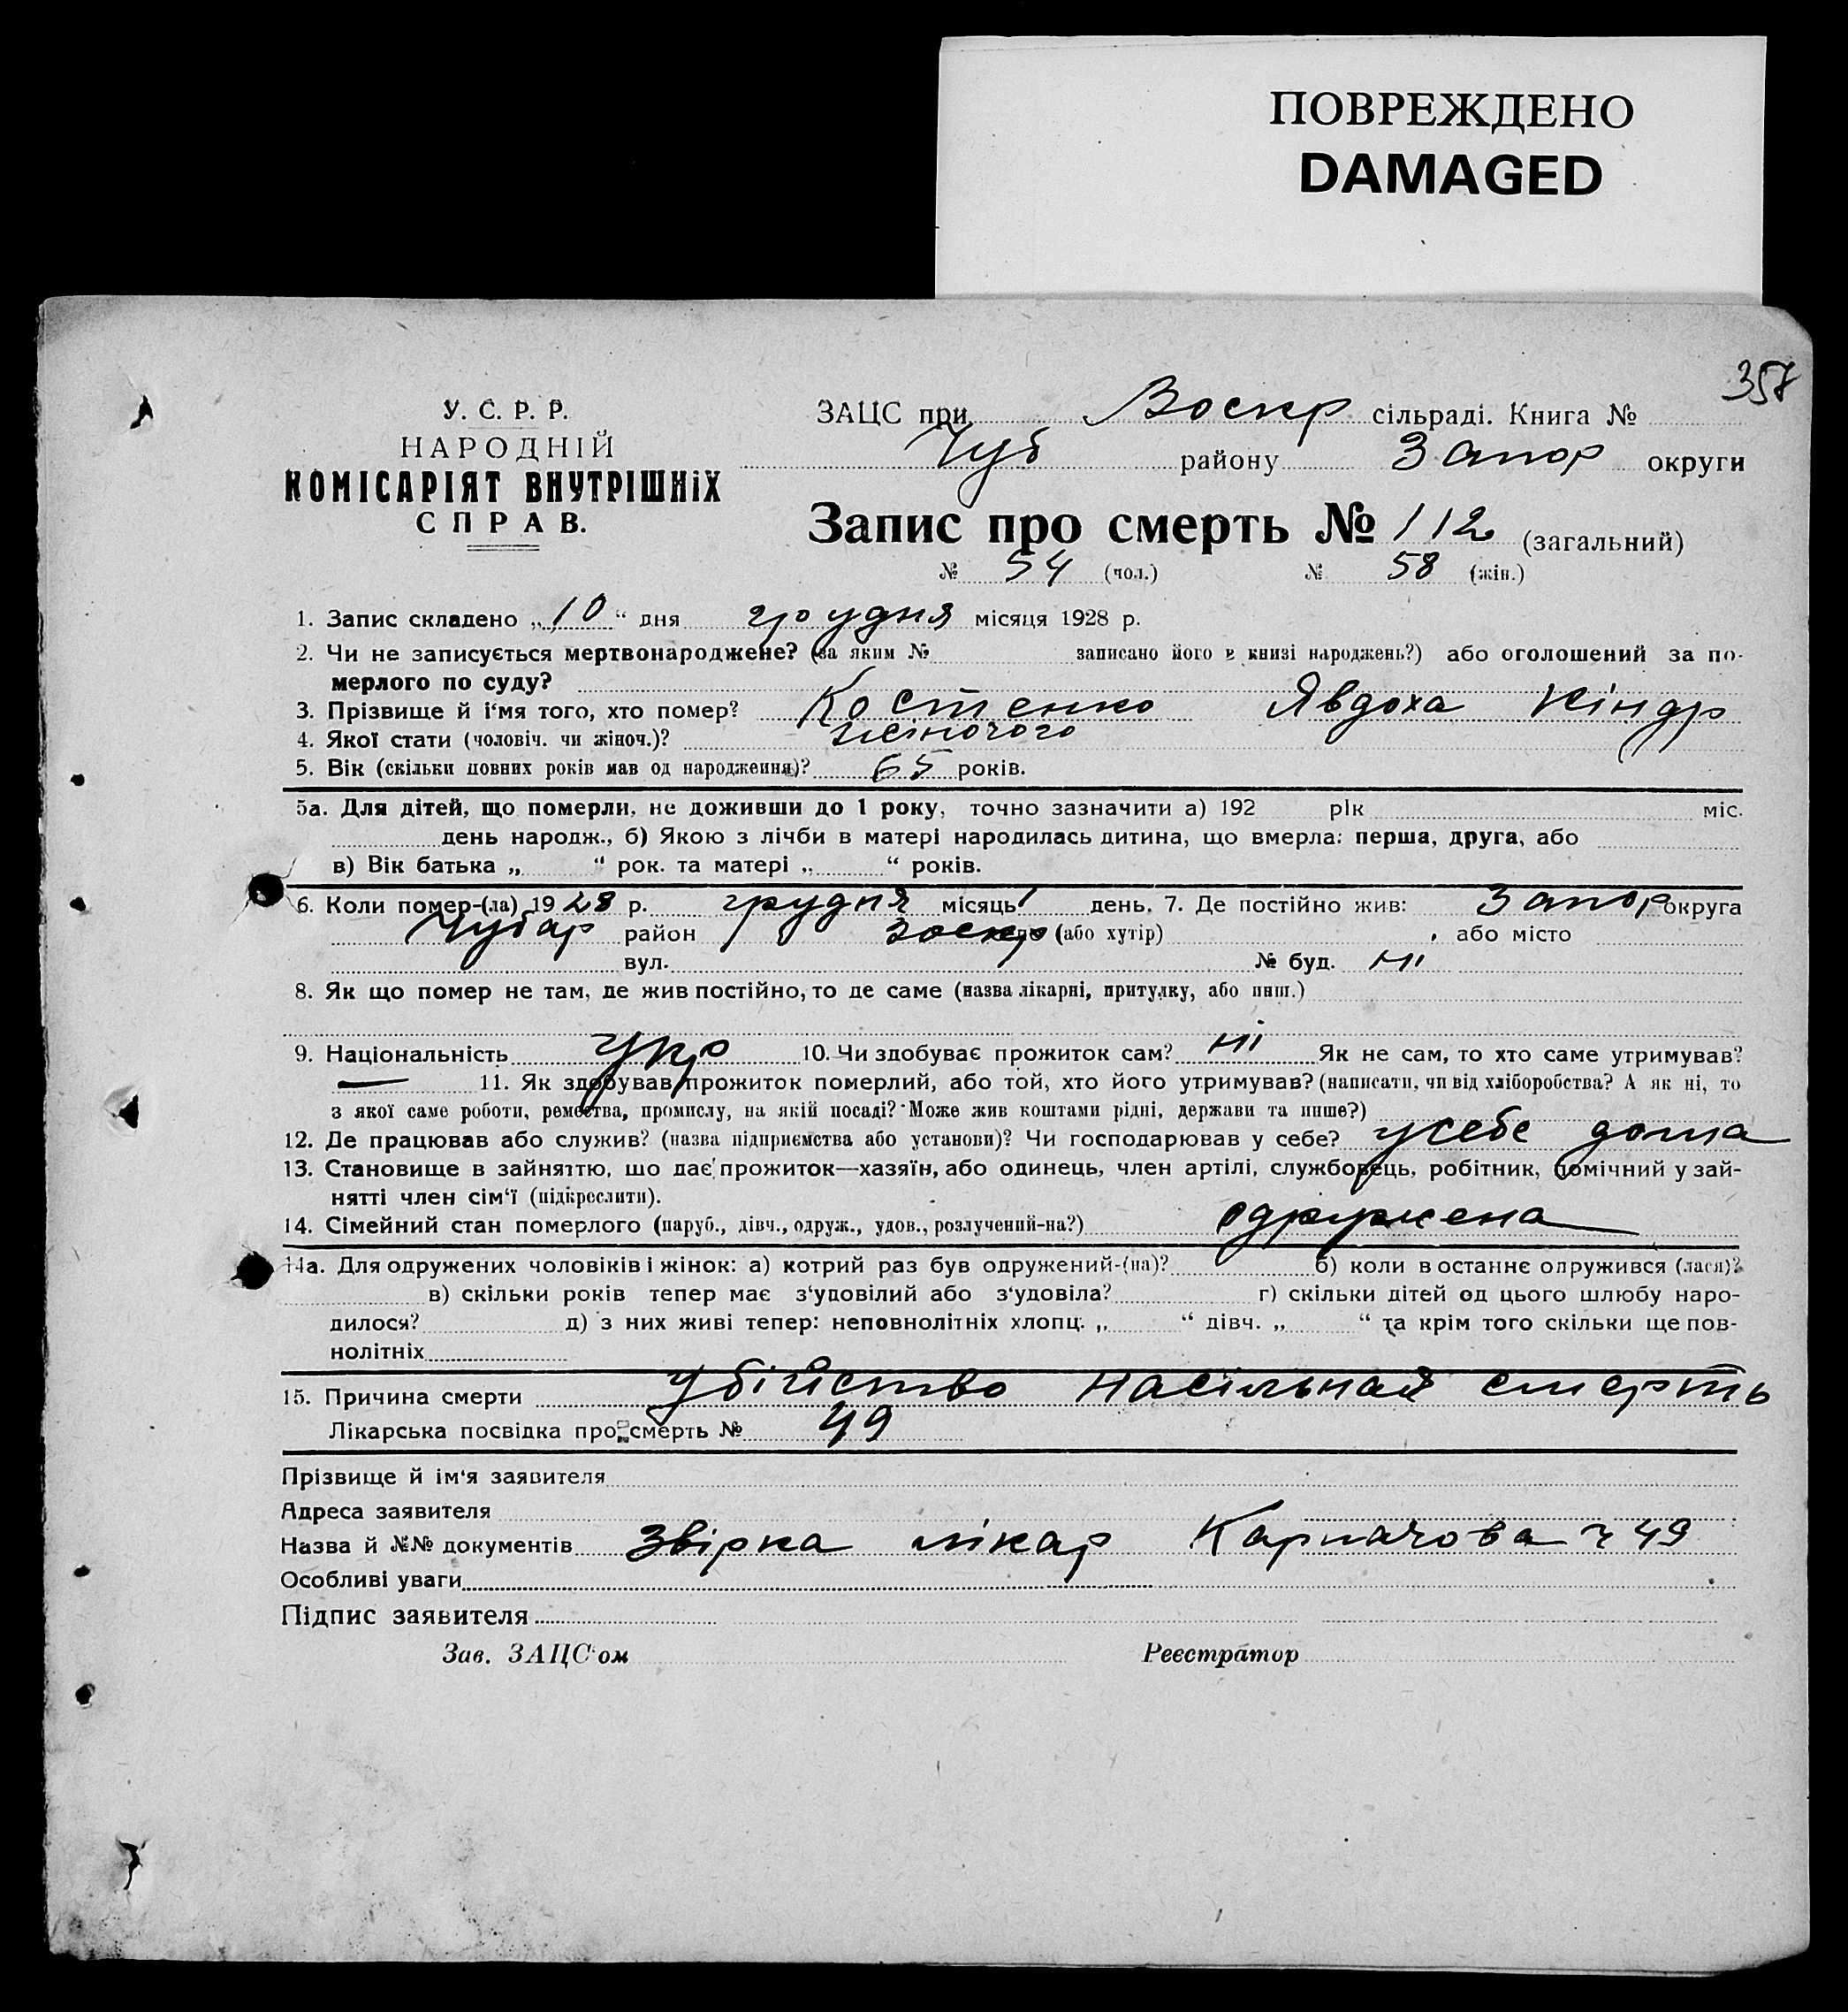 ПОВРЕЖДЕНО
DAMAGED
357
У. С. Р. Р.
НАРОДНІЙ
КОМІСАРІЯТ ВНУТРІШНІХ
СПРАВ.
ЗАЦС при Воскр сільраді. Книга №
Чуб району Запор округи
Запис про смерть № 112 (загальний)
№ 54 (чол.) № 58 (жін.)
1. Запис складено „10“ дня грудня місяця 1928 р.
2. Чи не записується мертвонароджене? (за яким № записано його в книзі народжень?) або оголошений за по-
мерлого по суду?
3. Прізвище й і'мя того, хто помер? Костенко Явдоха Кіндр
4. Якої стати (чоловіч. чи жіноч.)? жіночого
5. Вік (скільки повних років мав од народження)? 65 років.
5а. Для дітей, що померли, не доживши до 1 року, точно зазначити а) 192 рік міс.
день народж., б) Якою з лічби в матері народилась дитина, що вмерла: перша, друга, або
в) Вік батька „ “ рок. та матері „ “ років.
6. Коли помер-(ла) 1928 р. грудня місяць 1 день. 7. Де постійно жив: Запор округа
Чубар район Воскр (або хутір) , або місто
вул. № буд. ні
8. Як що помер не там, де жив постійно, то де саме (назва лікарні, притулку, або инш.)
9. Національність Укр 10. Чи здобуває прожиток сам? ні Як не сам, то хто саме утримував?
— 11. Як здобував прожиток померлий, або той, хто його утримував? (написати, чи від хліборобства? А як ні, то
з якої саме роботи, ремества, промислу, на якій посаді? Може жив коштами рідні, держави та инше?)
12. Де працював або служив? (назва підприємства або установи)? Чи господарював у себе? у себе дома
13. Становище в зайняттю, що дає прожиток—хазяїн, або одинець, член артілі, службовець, робітник, помічний у зай-
нятті член сім'ї (підкреслити).
14. Сімейний стан померлого (паруб., дівч., одруж., удов., розлучений-на?) одружена
14а. Для одружених чоловіків і жінок: а) котрий раз був одружений-(на)? б) коли востаннє одружився (лася)?
в) скільки років тепер має з'удовілий або з'удовіла? г) скільки дітей од цього шлюбу наро-
дилося? д) з них живі тепер: неповнолітніх хлопц. „ “ дівч. „ “ та крім того скільки ще пов-
нолітніх
15. Причина смерти убійство насільная смерть
Лікарська посвідка про смерть № 49
Прізвище й ім'я заявителя
Адреса заявителя
Назва й №№ документів Звірка лікар Карпачова ч 49
Особливі уваги
Підпис заявителя
Зав. ЗАЦС'ом Реєстратор